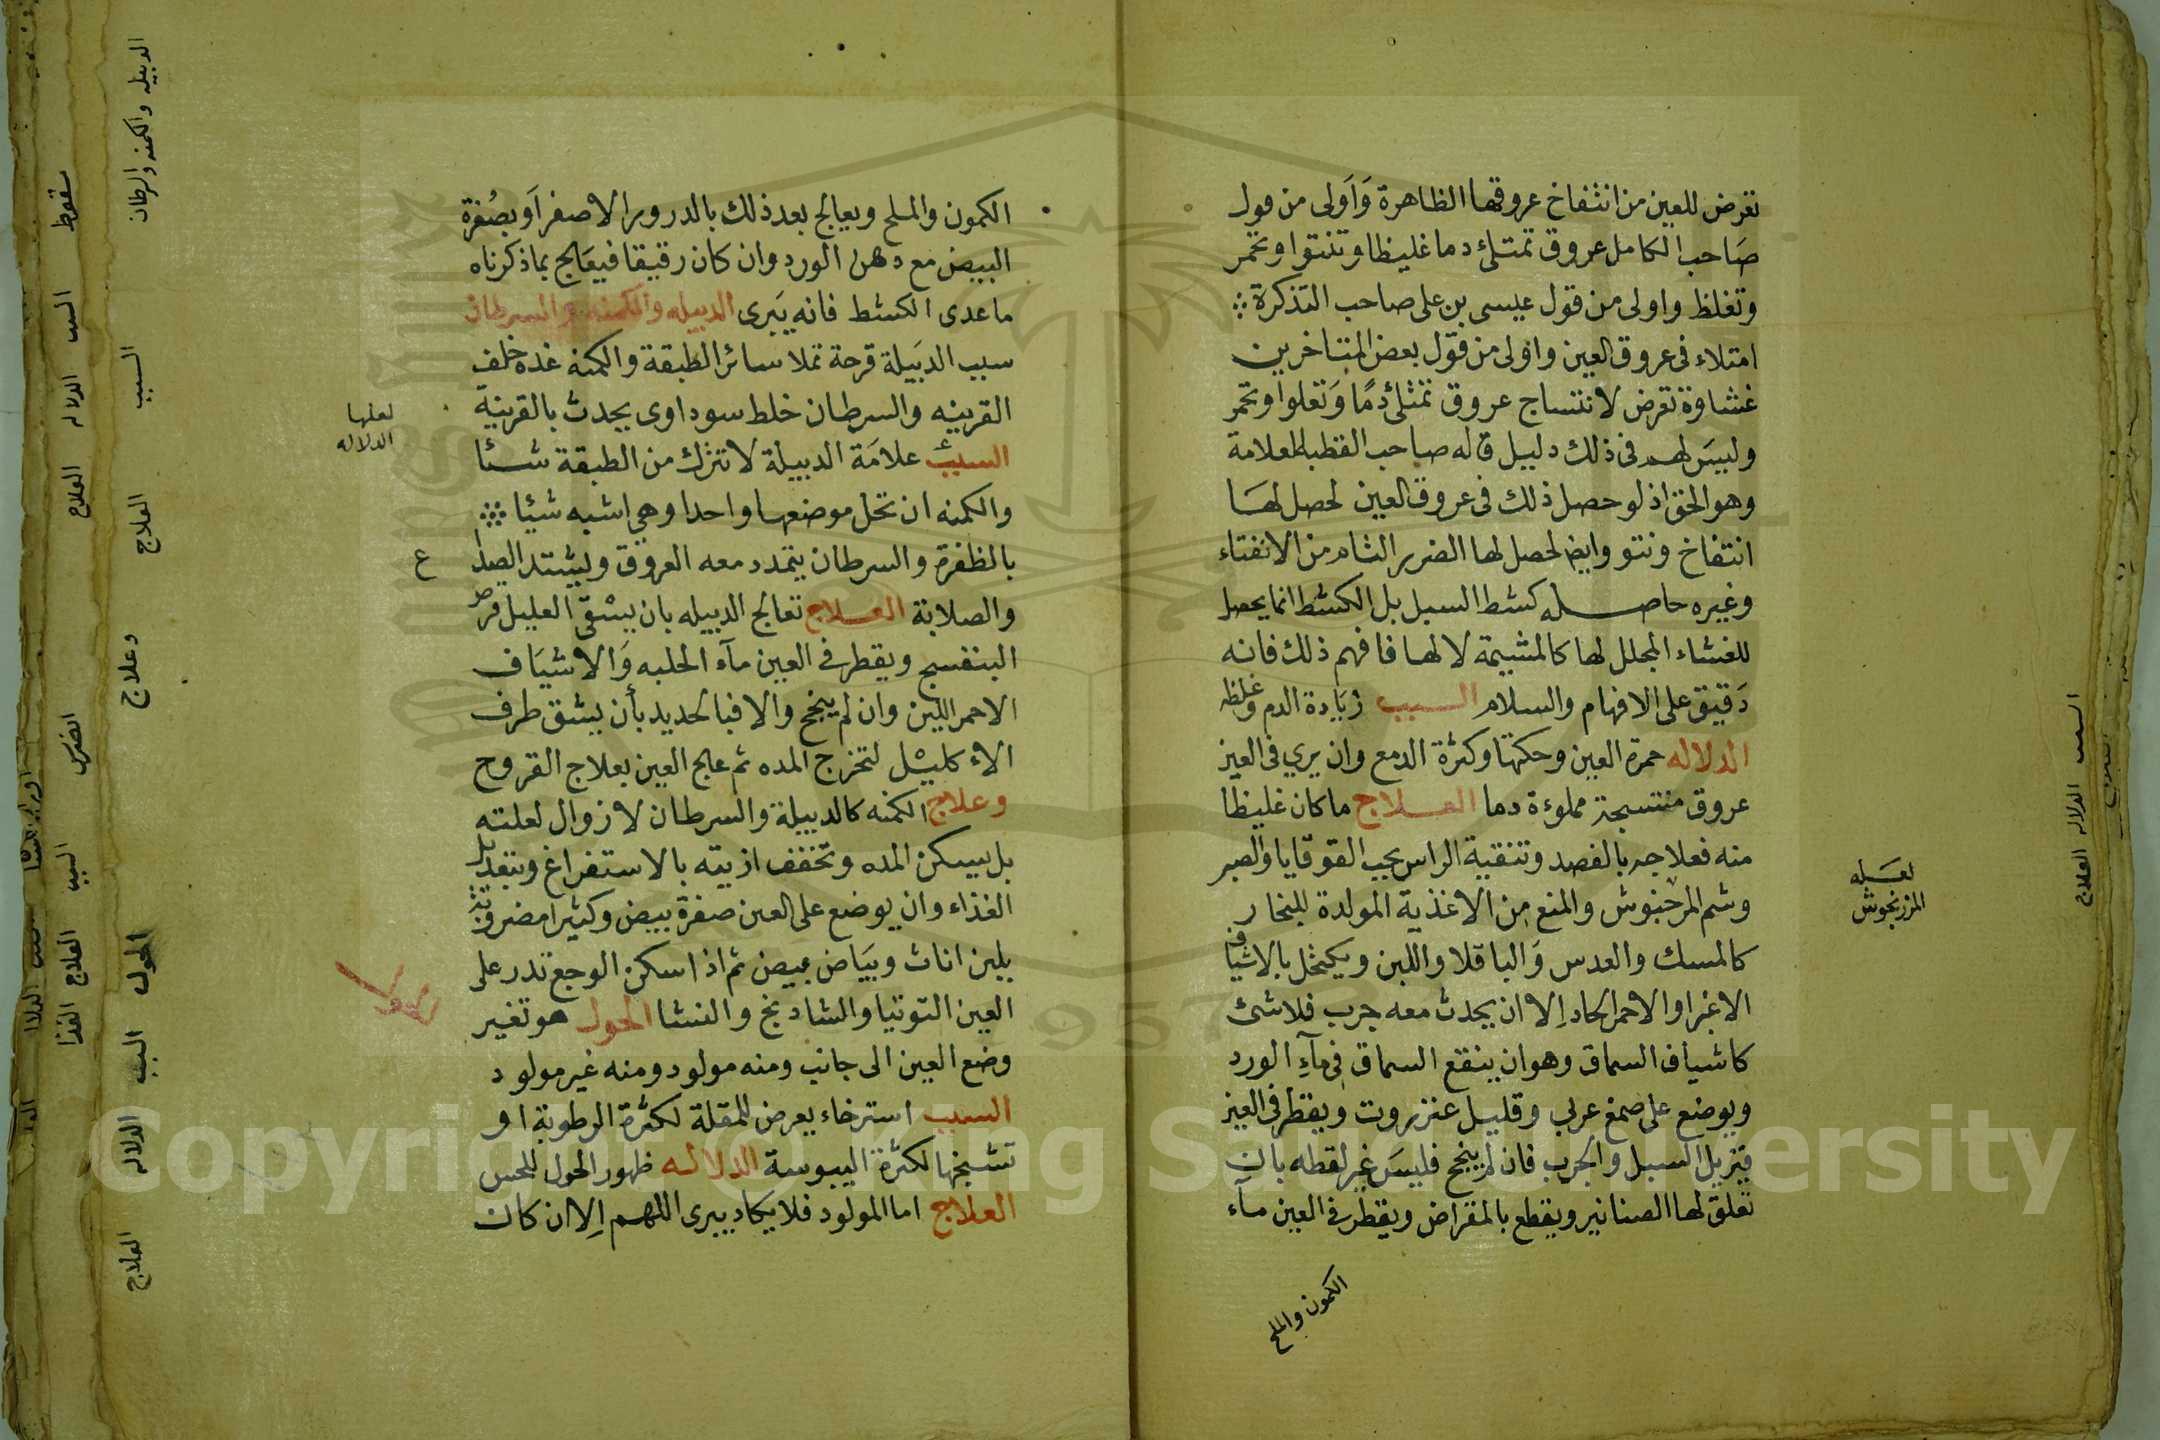 تعرض للعين من انتفاخ عروقها الظاهرة وَاَولى من قول
صَاحب الكامل عروق تمتلئ دما غليظا وتنتوا وتحمر
وتغلظ واولى من قول عيسى بن على صاحب التذكرة
امتلاء فى عروق العين واولى من قول بعض المتاخرين
غشاوة تعرض لانتساج عروق تمتلئ دمًا وَتعلوا وتحمر
وليسَ لهم فى ذلك دليل قاله صاحب القطب العلامة
وهو الحق اذ لو حصل ذلك فى عروق العين لحصل لهَا
انتفاخ ونتو وايضا لحصل لها الضرر التام من الانفتاء
وغيره حاصله كشط السبل بل الكشط انما يحصل
للغشاء المجلل لها كالمشيمة لا لها فافهم ذلك فانه
دَقيق على الافهام والسلام السبب زيَادة الدم وغلظه
الدلاله حمرة العين وحكتها وكثرة الدمع وان يري فى العين
عروق منتسجة مملوءة دما العلاج ما كان غليظا
منه فعلاجه بالفصد وتنقية الراس بحب القوقايا والصبر
وشم المرحبوش والمنع مِن الاغذية المولدة للبخار
كالمسك والعدس وَالباقلا واللبن ويكتحل بالاشياف
الاغبر او الاحمر الحاد اِلا ان يحدث معه جرب فلا شئ
كاشياف السماق وهو ان ينقع السماق فى مآءِ الورد
ويوضع على صمغ عربي وقليل عنزروت ويقطر فى العين
فيزيل السبل والجرب فان لم ينجح فليسَ غير لقطه بان
تعلق لها الصنانير ويقطع بالمقراض ويقطر فى العين مآء
الكمون والملح
لعَله
المرزنجوش
السبب الدلاله العلاج
الكمون والملح ويعالج بعد ذلك بالدرور الاصفر اَو بصُفرة
البيض مع دهن الورد وان كان رقيقا فيعَالج بما ذكرناه
ما عدى الكشط فانه يَبرى الدبيله والكمنه والسرطان
سبب الدبَيلة قرحة تملا سائر الطبقة والكمنه غده خلف
القرينه والسرطان خلط سوداوى يحدث بالقرينة
السبب علامَة الدبيلة لا تترك من الطبقة شئا
والكمنه ان تحل موضعها واحدا وهي اشبه شيئا
بالظفرة والسرطان يتمدد معه العروق ويشتد الصداع
والصلابة العلاج تعالج الدبيله بان يسْقى العليل قرص
البنفسج ويقطر فى العين مآء الحلبه وَالاشيَاف
الاحمر اللين وان لم ينجح والا فبالحديد بأن يشق طرف
الاكليل لتخرج المده ثم عالج العين بعلاج القروح
وعلاج الكمنه كالدبيلة والسرطان لا زوال لعلته
بل يسكن المده وتخفف اذيته بالاستفراغ وتبديل
الغذاء وان يوضع على العين صفرة بيض وكثيرا مضروبة
بلبن اناث وبيَاض بيض ثم اذا سكن الوجع تدر على
العين التوتيا والشادنج والنشا الحول هو تغير
وضع العين الى جانب ومنه مولود ومنه غير مولود
السبب استرخاء يعرض للمقلة لكثرة الرطوبة او
تشنجها لكثرة اليبوسة الدلاله ظهور الحول للحس
العلاج اما المولود فلا يكاد يبرى اللهم اِلا ان كان
لعلها
الدلاله
ع
الحول
الدبيله والكمنه والسرطان
السبب
العلاج
وعلاج
الحول
السبب
الدلاله
العلاج
سقوط
السبب
الدلاله
العلاج
السبب
العلاج